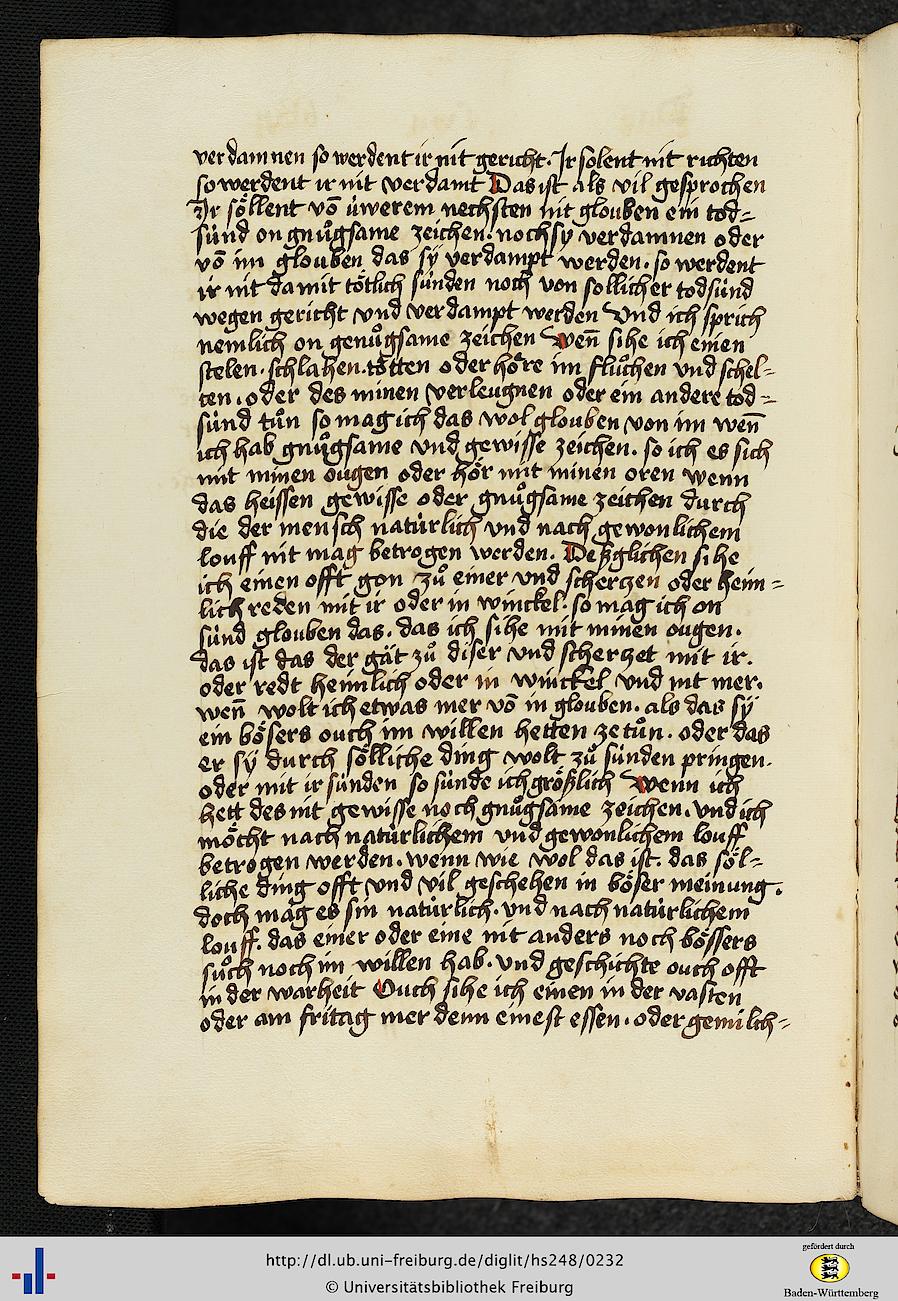 verdamnen so werdent ir nit gericht. Ir solent nit richten
so werdent ir nit verdamt Das ist als vil gesprochen
Ir söllent vō üwerem nechsten nit glouben ein tod=
sünd on gnůgsame zeichen. noch sy verdamnen oder
vō im glouben das sÿ verdampt werden. so werdent
ir nit da mit tötlich sünden noch von sollicher todsünd
wegen gericht vnd verdampt werden Vnd ich sprich
nemlich on genůgsame zeichen Wen̄ sihe ich einen
stelen. schlahen. tötten oder höre im flůchen vnd schel=
ten. oder des minen verleugnen oder ein andere tod=
sünd tůn so mag ich das wol glouben von im wen̄
ich hab gnůgsame vnd gewisse zeichen. so ich es sich
mit minen ougen oder hör mit minen oren wenn
das heissen gewisse oder gnůgsame zeichen durch
die der mensch natürlich vnd nach gewonlichem
louff nit mag betrogen werden. Deßglichen sihe
ich einen offt gon zů einer vnd scherczen oder heim=
lich reden mit ir oder in winckel. so mag ich on
sünd glouben das. das ich sihe mit minen ougen.
das ist das der gät zů diser vnd scherczet mit ir.
oder redt heimlich oder in winckel vnd nit mer.
wen̄ wolt ich etwas mer vō in glouben. als das sÿ
ein bösers ouch im willen hetten ze tůn. oder das
er sÿ durch sölliche ding wolt zů sünden pringen.
oder mit ir sünden so sünde ich größlich Wenn ich
hett des nit gewisse noch gnůgsame zeichen. vnd ich
möcht nach natürlichem vnd gewonlichem louff
betrogen werden. wenn wie wol das ist. das söl=
liche ding offt vnd vil geschehen in böser meinung.
doch mag es sin natürlich. vnd nach natürlichem
louff. das einer oder eine nit anders noch bössers
sůch noch im willen hab. vnd geschichte ouch offt
in der warheit Ouch sihe ich einen in der vasten
oder am fritag mer denn einest essen. oder gemilch=
http://dl.ub.uni-freiburg.de/diglit/hs248/0232
© Universitätsbibliothek Freiburg
gefördert durch
Baden-Württemberg